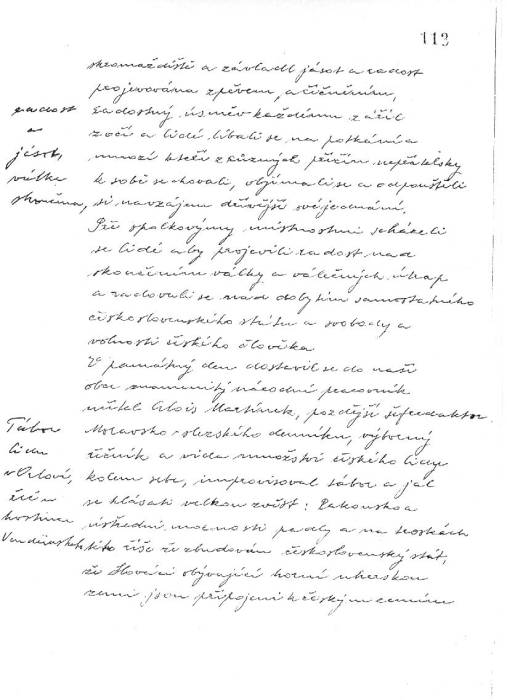 113
shromaždiště a závladl jásot a radost
projevována zpěvem, a řičněním,
radostný úsměv každému zářil
z očí a lidé líbali se na potkání a
mnozí kteří z různých příčin nepřátelsky
k sobě se chovali, objímali se a odpouštěli
si navzájem dřívější své jednání.
radost
a
jásot,
válka
skončena,
Při spolkovými místnostmi scházeli
se lidé aby projevili radost nad
skončením války a válečných útrap
a radovali se nad dobytím samostatného
československého státu a svobody a
volnosti českého člověka.
V památný den dostavil se do naší
obce znamenitý národní pracovník
učitel Alois Martínek, pozdější šéfredaktor
Moravsko-slezského denníku, výborný
řečník a vida množství českého lidu
kolem sebe, improvisoval tábor a jal
se hlásati velkou zvěst: Rakousko a
ústřední mocnosti padly a na troskách
této říše že zbudován československý stát,
že Slováci obývající horní uherskou
zemi jsou připojeni k českým zemím
Tábor
lidu
v Orlové,
hostince